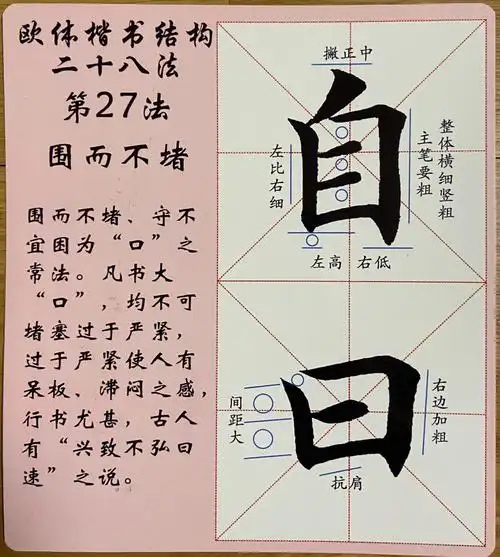 欧体楷书结构
二十八法
第27法
围而不堵
围而不堵、守不
宜困为“口”之
常法。凡书大
“口”，均不可
堵塞过于严紧，
过于严紧使人有
呆板、滞闷之感，
行书尤甚，古人
有“兴致不弘曰
速”之说。
撇正中
自
左比右细
整体横细竖粗
主笔要粗
左高 右低
曰
间距大
右边加粗
抗肩